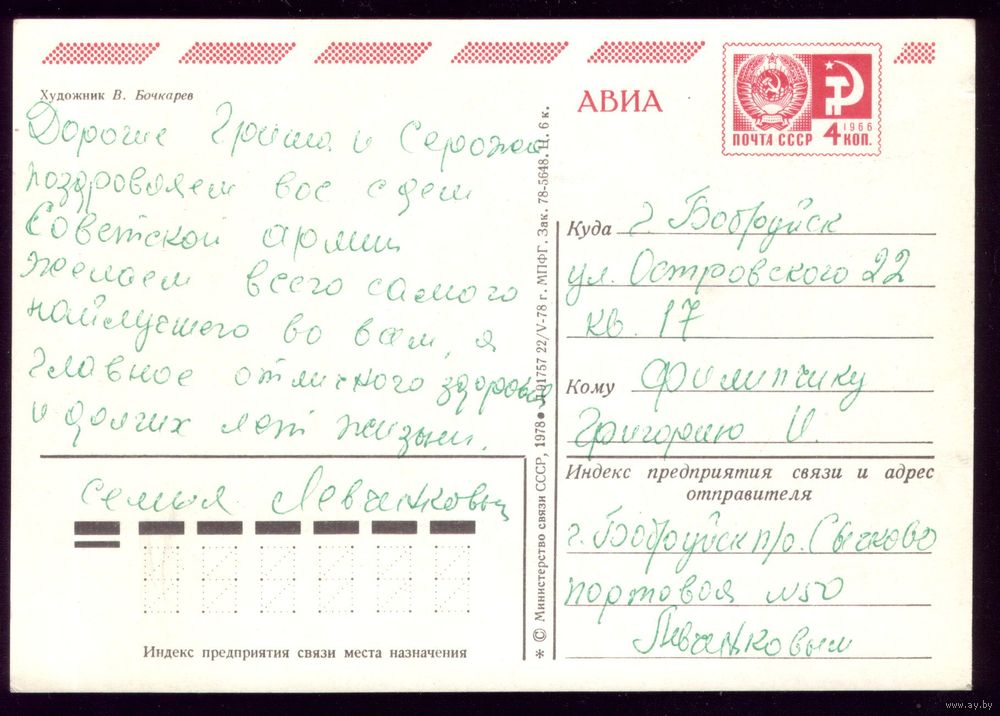 Художник В. Бочкарев
Дорогие Гриша и Сережа
поздровляем вас с днем
Советской армии
желаем всего самого
найлучшего во всем, я
главное отличного здоровья
и долгих лет жизни.
семья Левчанковых
Индекс предприятия связи места назначения
* © Министерство связи СССР, 1978 ● 91757 22/V-78 г. МПФГ. Зак. 78-5648. Ц. 6 к.
АВИА
ПОЧТА СССР
1966
4 КОП.
Куда г. Бобруйск
ул. Островского 22
кв. 17
Кому Филипчику
Григорию И.
Индекс предприятия связи и адрес
отправителя
г. Бобруйск п/о. Сычково
портовая №50
Левчанковым
www.ay.by